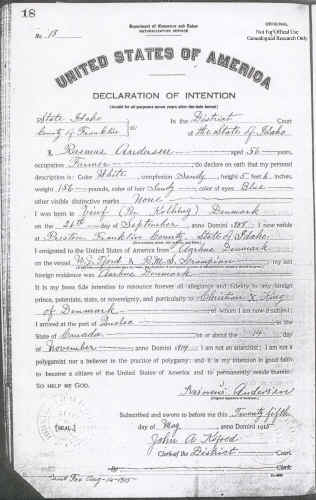 18
Department of Commerce and Labor
NATURALIZATION SERVICE
ORIGINAL
No. 18
Not For Official Use
Genealogical Research Only
UNITED STATES OF AMERICA
DECLARATION OF INTENTION
(Invalid for all purposes seven years after the date hereof)
State Idaho
County of Franklin
ss:
In the District Court
of the State of Idaho
I, Rasmus Andersen, aged 56 years,
occupation Farmer, do declare on oath that my personal
description is: Color White, complexion Sandy, height 5 feet 6 inches,
weight 156 pounds, color of hair Sandy, color of eyes Blue
other visible distinctive marks None
I was born in Denmark
on the 26th day of September, anno Domini; I now reside
at Preston Franklin County State of Idaho.
I emigrated to the United States of America from Denmark
on the vessel & R.M.S. Grampian; my last
foreign residence was Denmark
It is my bona fide intention to renounce forever all allegiance and fidelity to any foreign
prince, potentate, state, or sovereignty, and particularly to Christian X King
of Denmark, of whom I am now a subject;
I arrived at the port of Quebec, in the
State of Canada, on or about the 14 day
of November, anno Domini; I am not an anarchist; I am not a
polygamist nor a believer in the practice of polygamy; and it is my intention in good faith
to become a citizen of the United States of America and to permanently reside therein:
SO HELP ME GOD.
Rasmus Andersen
(Original signature of declarant)
Subscribed and sworn to before me this Twenty fifth
[SEAL.]
day of May, anno Domini 1915
John A.
Clerk of the District Court.
By, Clerk.
Aug-14-1915